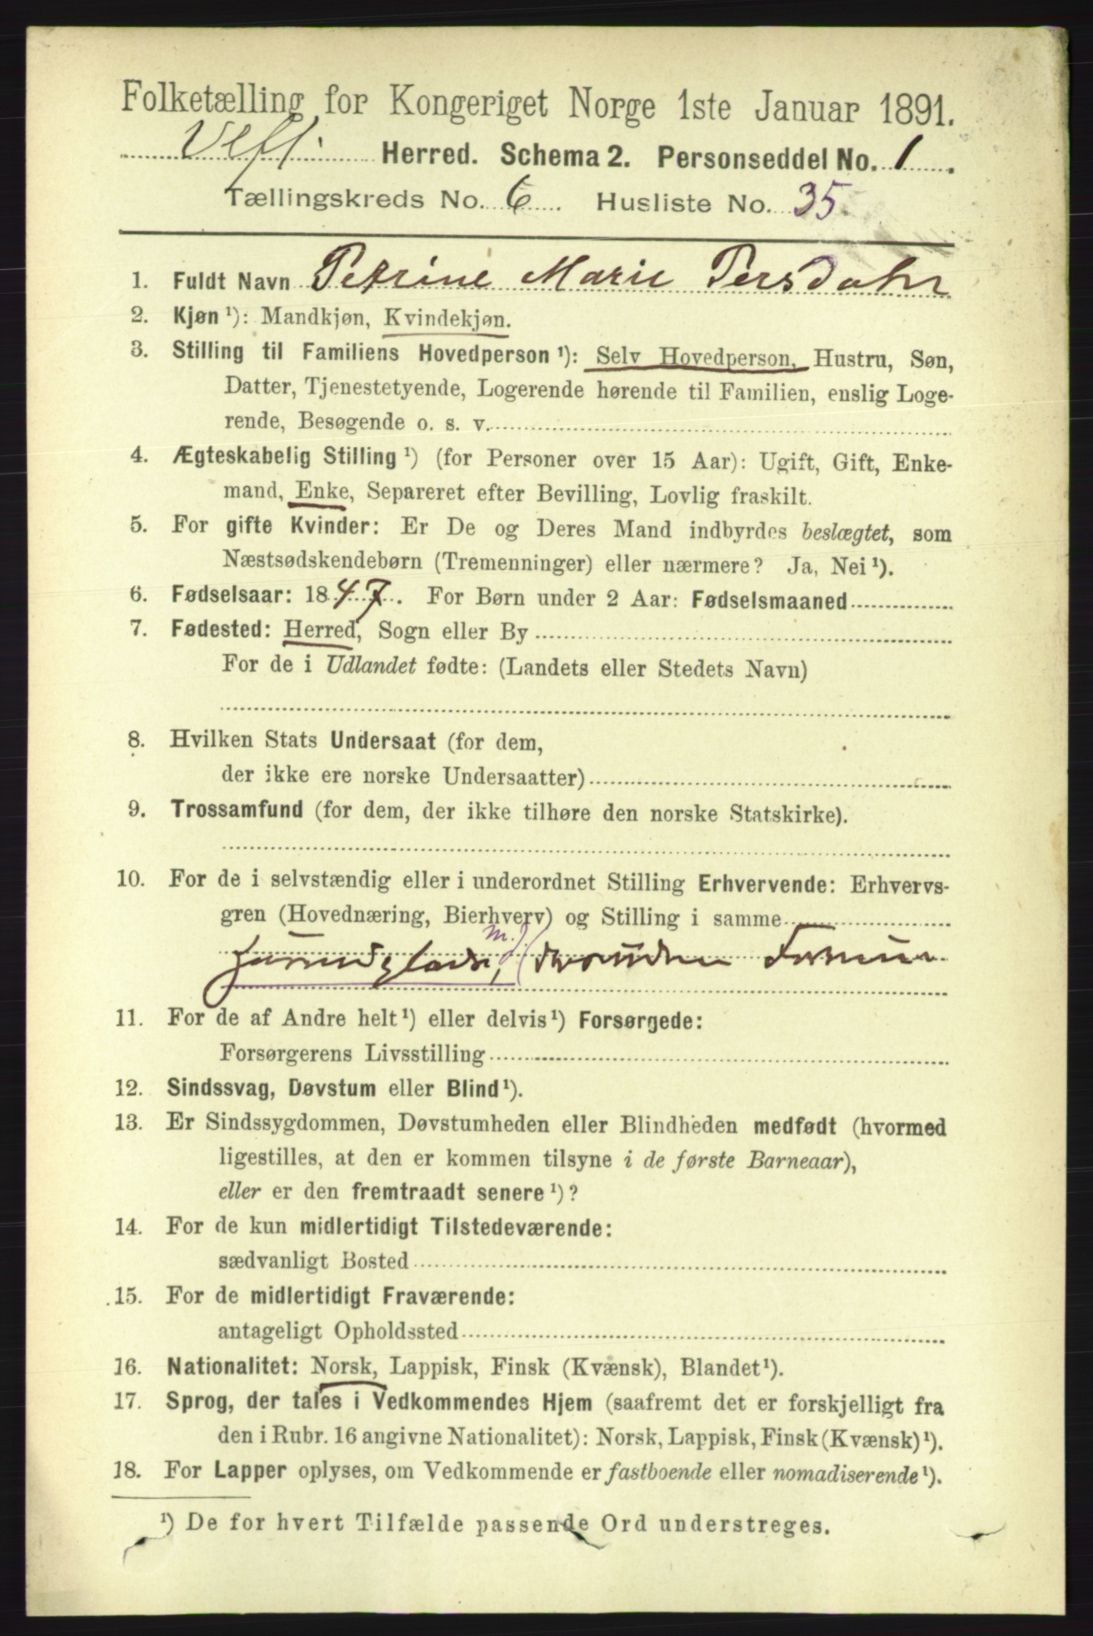 Folketælling for Kongeriget Norge 1ste Januar 1891.
Herred. Schema 2. Personseddel No. 1.
Tællingskreds No. 6. Husliste No. 35.
1. Fuldt Navn Petrine Marie Persdatter
2. Kjøn ¹): Mandkjøn, Kvindekjøn.
3. Stilling til Familiens Hovedperson ¹): Selv Hovedperson, Hustru, Søn,
Datter, Tjenestetyende, Logerende hørende til Familien, enslig Loge-
rende, Besøgende o. s. v.
4. Ægteskabelig Stilling ¹) (for Personer over 15 Aar): Ugift, Gift, Enke-
mand, Enke, Separeret efter Bevilling, Lovlig fraskilt.
5. For gifte Kvinder: Er De og Deres Mand indbyrdes beslægtet, som
Næstsødskendebørn (Tremenninger) eller nærmere? Ja, Nei ¹).
6. Fødselsaar: 1847. For Børn under 2 Aar: Fødselsmaaned
7. Fødested: Herred, Sogn eller By
For de i Udlandet fødte: (Landets eller Stedets Navn)
8. Hvilken Stats Undersaat (for dem,
der ikke ere norske Undersaatter)
9. Trossamfund (for dem, der ikke tilhøre den norske Statskirke).
10. For de i selvstændig eller i underordnet Stilling Erhvervende: Erhvervs-
gren (Hovednæring, Bierhverv) og Stilling i samme
m. J.
11. For de af Andre helt ¹) eller delvis ¹) Forsørgede:
Forsørgerens Livsstilling
12. Sindssvag, Døvstum eller Blind ¹).
13. Er Sindssygdommen, Døvstumheden eller Blindheden medfødt (hvormed
ligestilles, at den er kommen tilsyne i de første Barneaar),
eller er den fremtraadt senere ¹)?
14. For de kun midlertidigt Tilstedeværende:
sædvanligt Bosted
15. For de midlertidigt Fraværende:
antageligt Opholdssted
16. Nationalitet: Norsk, Lappisk, Finsk (Kvænsk), Blandet ¹).
17. Sprog, der tales i Vedkommendes Hjem (saafremt det er forskjelligt fra
den i Rubr. 16 angivne Nationalitet): Norsk, Lappisk, Finsk (Kvænsk) ¹).
18. For Lapper oplyses, om Vedkommende er fastboende eller nomadiserende ¹).
¹) De for hvert Tilfælde passende Ord understreges.